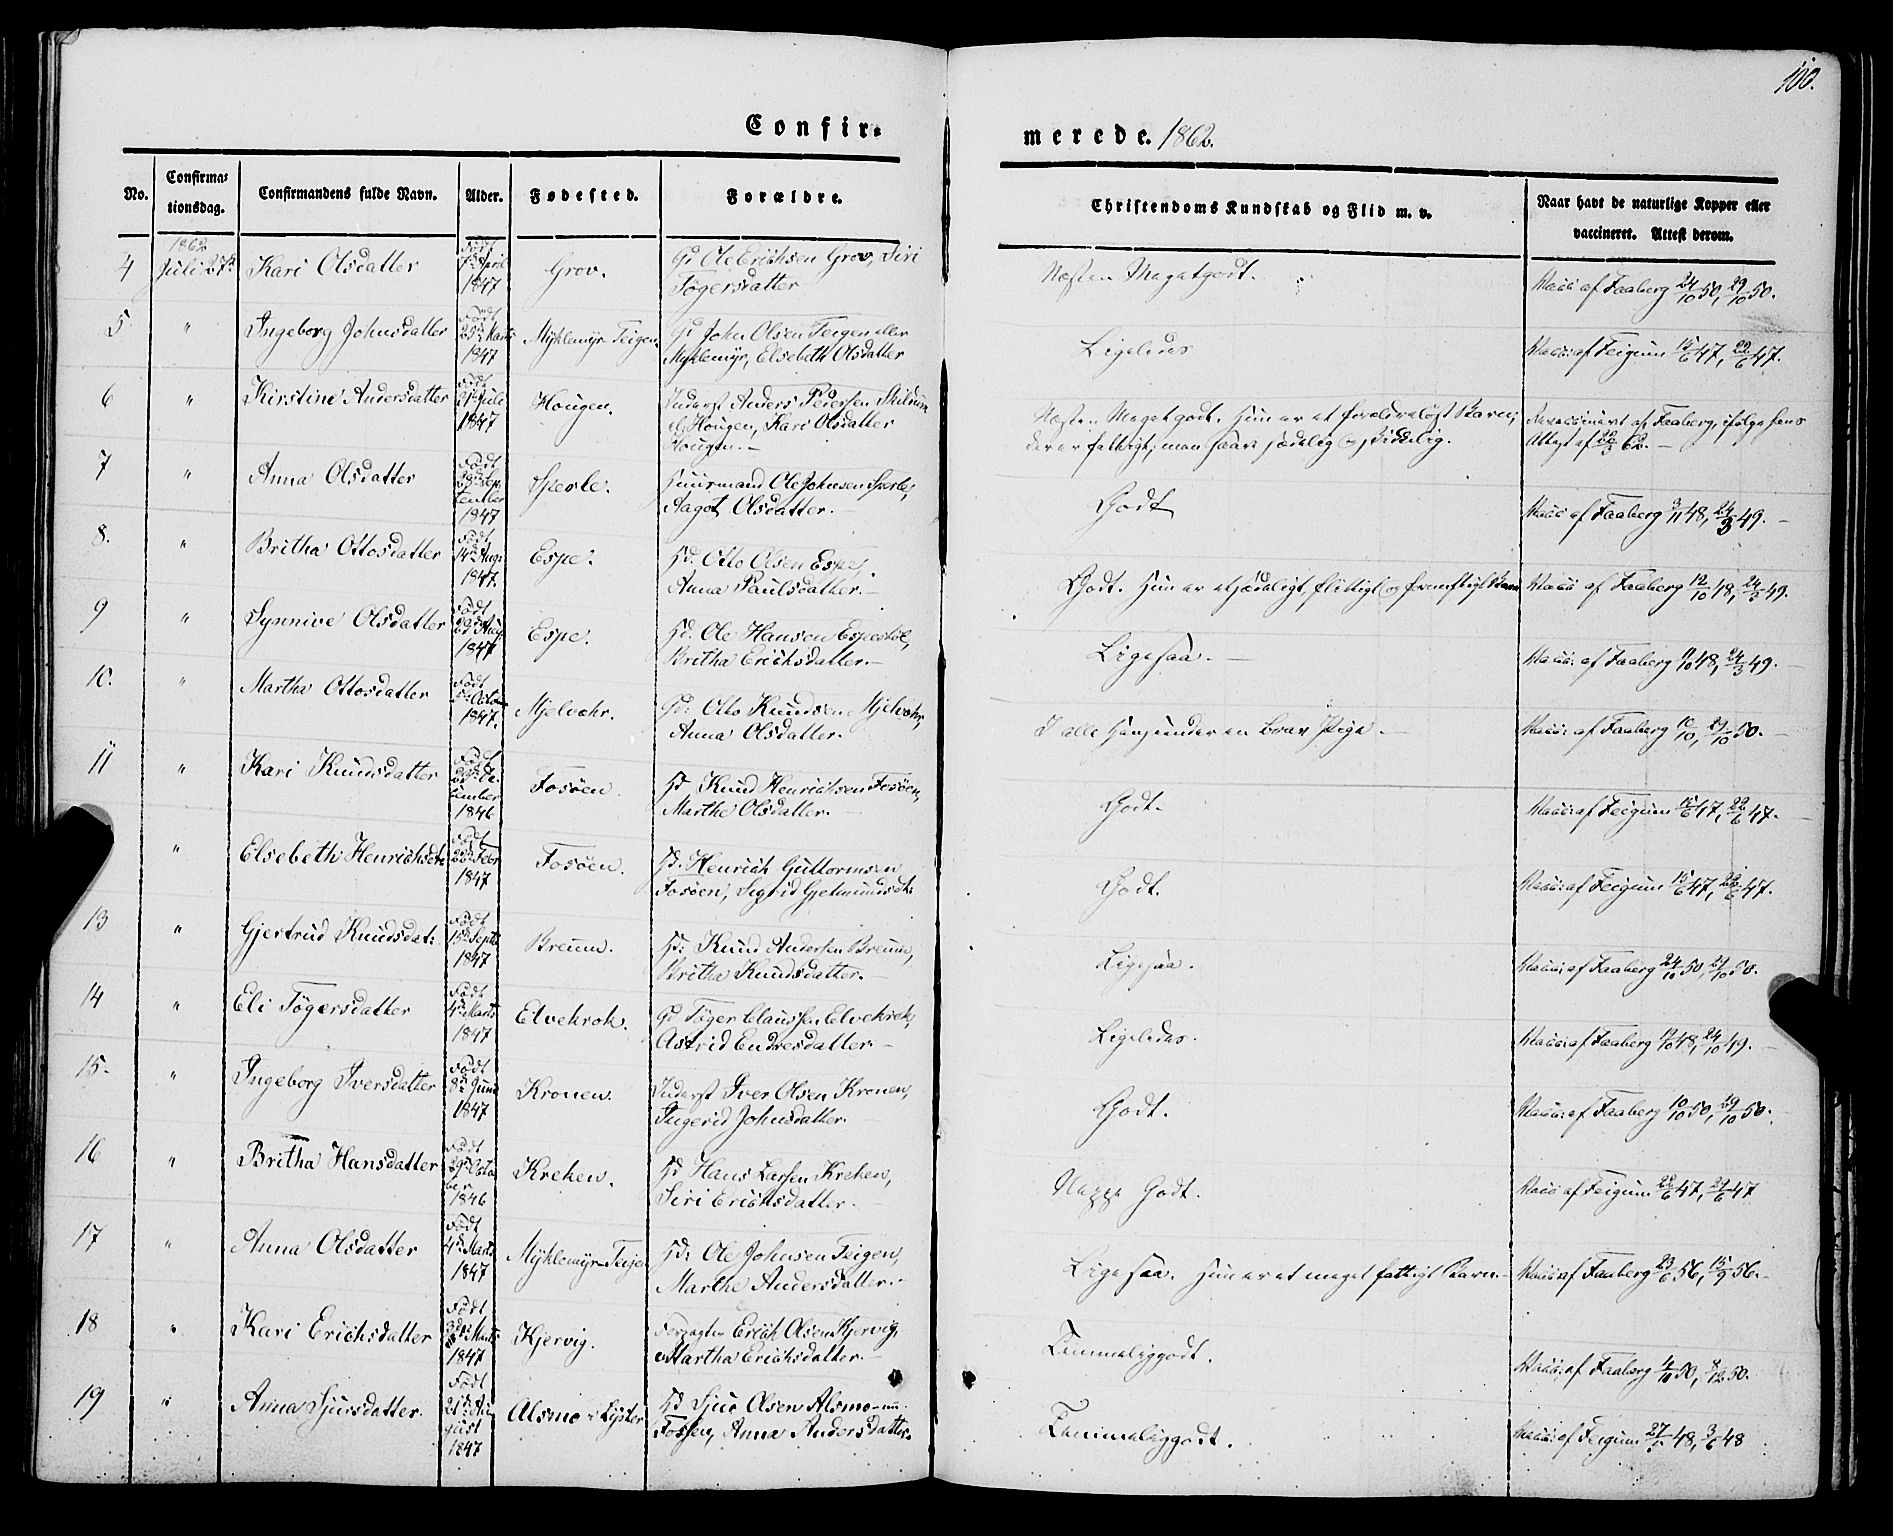 100.
Confir-
merede. 1862.
No.
Confirma-
tionsdag.
Confirmandens fulde Navn.
Alder.
Fødested.
Forældre.
Christendoms Kundskab og Flid m. v.
Naar havt de naturlige Kopper eller
vaccineret. Attest derom.
4
1862
Juli 27de
Kari Olsdatter
Født
7de April
1847
Grov.
Gd Ole Erichsen Grov, Siri
Tøgersdatter
Næsten Megetgodt.
Vacc: af Faaberg 24/10 50, 29/10 50.
5
"
Ingeborg Johnsdatter
Født
Marts
1847
Myklemyr-Teigen
Gd John Olsen Teigen eller
Myklemyr, Elsebeth Olsdatter
Ligeledes
Vacc: af Feigum 15/6 47, 22/6 47.
6
"
Kirstine Andersdatter
Født
21de Juli
1847
Hougen.
Inderst Anders Pedersen
Hougen, Kari Olsdatter
Hougen.-
Næsten Megetgodt. Hun er et forældreløst Barn;
der er fattigt, men sædelig og skikkelig.
Revaccineret af Faaberg, ifølge hans
Attest af 22/3 62.-
7
"
Anna Olsdatter
Født
Sep-
tember
1847
Sperle.
Huusmand Ole Johnsen Sperle,
Aagot Olsdatter.-
Godt
Vacc: af Faaberg 3/11 48, 24/3 49.-
8.
"
Britha Ottosdatter
Født
14de Aug:
1847.
Espe.
Hd. Otto Olsen Espe,
Anna Paulsdatter.-
Godt. Hun er et sædeligt, flittigt og fornuftigt Barn
Vacc: af Faaberg 12/10 48, 24/3 49.
9
"
Synnive Olsdatter
Født
Aug
1847
Espe.
Hd. Ole Hansen Espestøl,
Britha Erichsdatter.-
Ligesaa.-
Vacc: af Faaberg 11/10 48, 24/3 49.
10.
"
Martha Ottosdatter
Født
5te Octbr
1847.
Mjelvohr.
Gd: Otto Knudsen Mjelvohr,
Anna Olsdatter.
I alle Henseender en brav Pige.-
Vacc: af Faaberg 10/10, 29/10 50.-
11
"
Kari Knudsdatter
Født
De-
cember
1846
Fosøen.
Hd, Knud Henrichsen Fosøen,
Martha Olsdatter.-
Godt.
Vacc: af Feigum 15/6 47, 22/6 47.
"
Elsebeth Henrichsdtr
Født
Febr
1847
Fosøen.
Hd. Henrich Guttormsen
Fosøen, Sigrid Gjelmundsdt:
Godt.
Vacc: af Feigum 15/6 47, 22/6 47.
13
"
Gjertrud Knudsdat:
Født
15de Septb
1847
Breum.
Hd: Knud Andersen Breum,
Britha Knudsdatter.-
Ligesaa.
Vacc: af Faaberg 24/10 50, 29/10 50.
14
"
Eli Tøgersdatter
Født
4de Marts
1847
Elvekrok.
Gd Tøger Claussen Elvekrok,
Astrid Endresdatter-
Ligeledes.
Vacc: af Faaberg 12/10 48, 24/10 49.-
15-
"
Ingeborg Iversdatter
Født
8de Juni
1847
Kronen.
Inderst Iver Olsen Kronen,
Ingerid Johnsdatter.-
Godt.
Vacc: af Faaberg 10/10 50, 29/10 50.
16
"
Britha Hansdatter
Født
29de Octo-
ber
1846
Kreken.
Hd Hans Larsen Kreken,
Siri Erichsdatter.-
Neppe Godt.
Vacc: af Feigum 22/6 47, 29/6 47
17
"
Anna Olsdatter
Født
4de Marts
1847
Myklemyr-Teigen
Hd: Ole Johnsen Teigen,
Marthe Andersdatter.-
Ligesaa. Hun er et meget fattigt Barn.-
Vacc: af Faaberg 23/6 56, 15/9 56.-
18
"
Kari Erichsdatter
Født
Marts
1847
Kjervig.
Forpagter Erich Olsen Kjervig,
Martha Erichsdatter.-
Temmeliggodt.
Vacc: af Faaberg 4/11 50, 4/12 50.
19
"
Anna Sjursdatter.
Født
21de Au-
gust
1847
Alsmo i Lyster
Hd Sjur Olsen Alsmo-
Fossen, Anna Andersdatter.
Temmeliggodt.
Vacc: af Feigum 27/5 48, 3/6 48